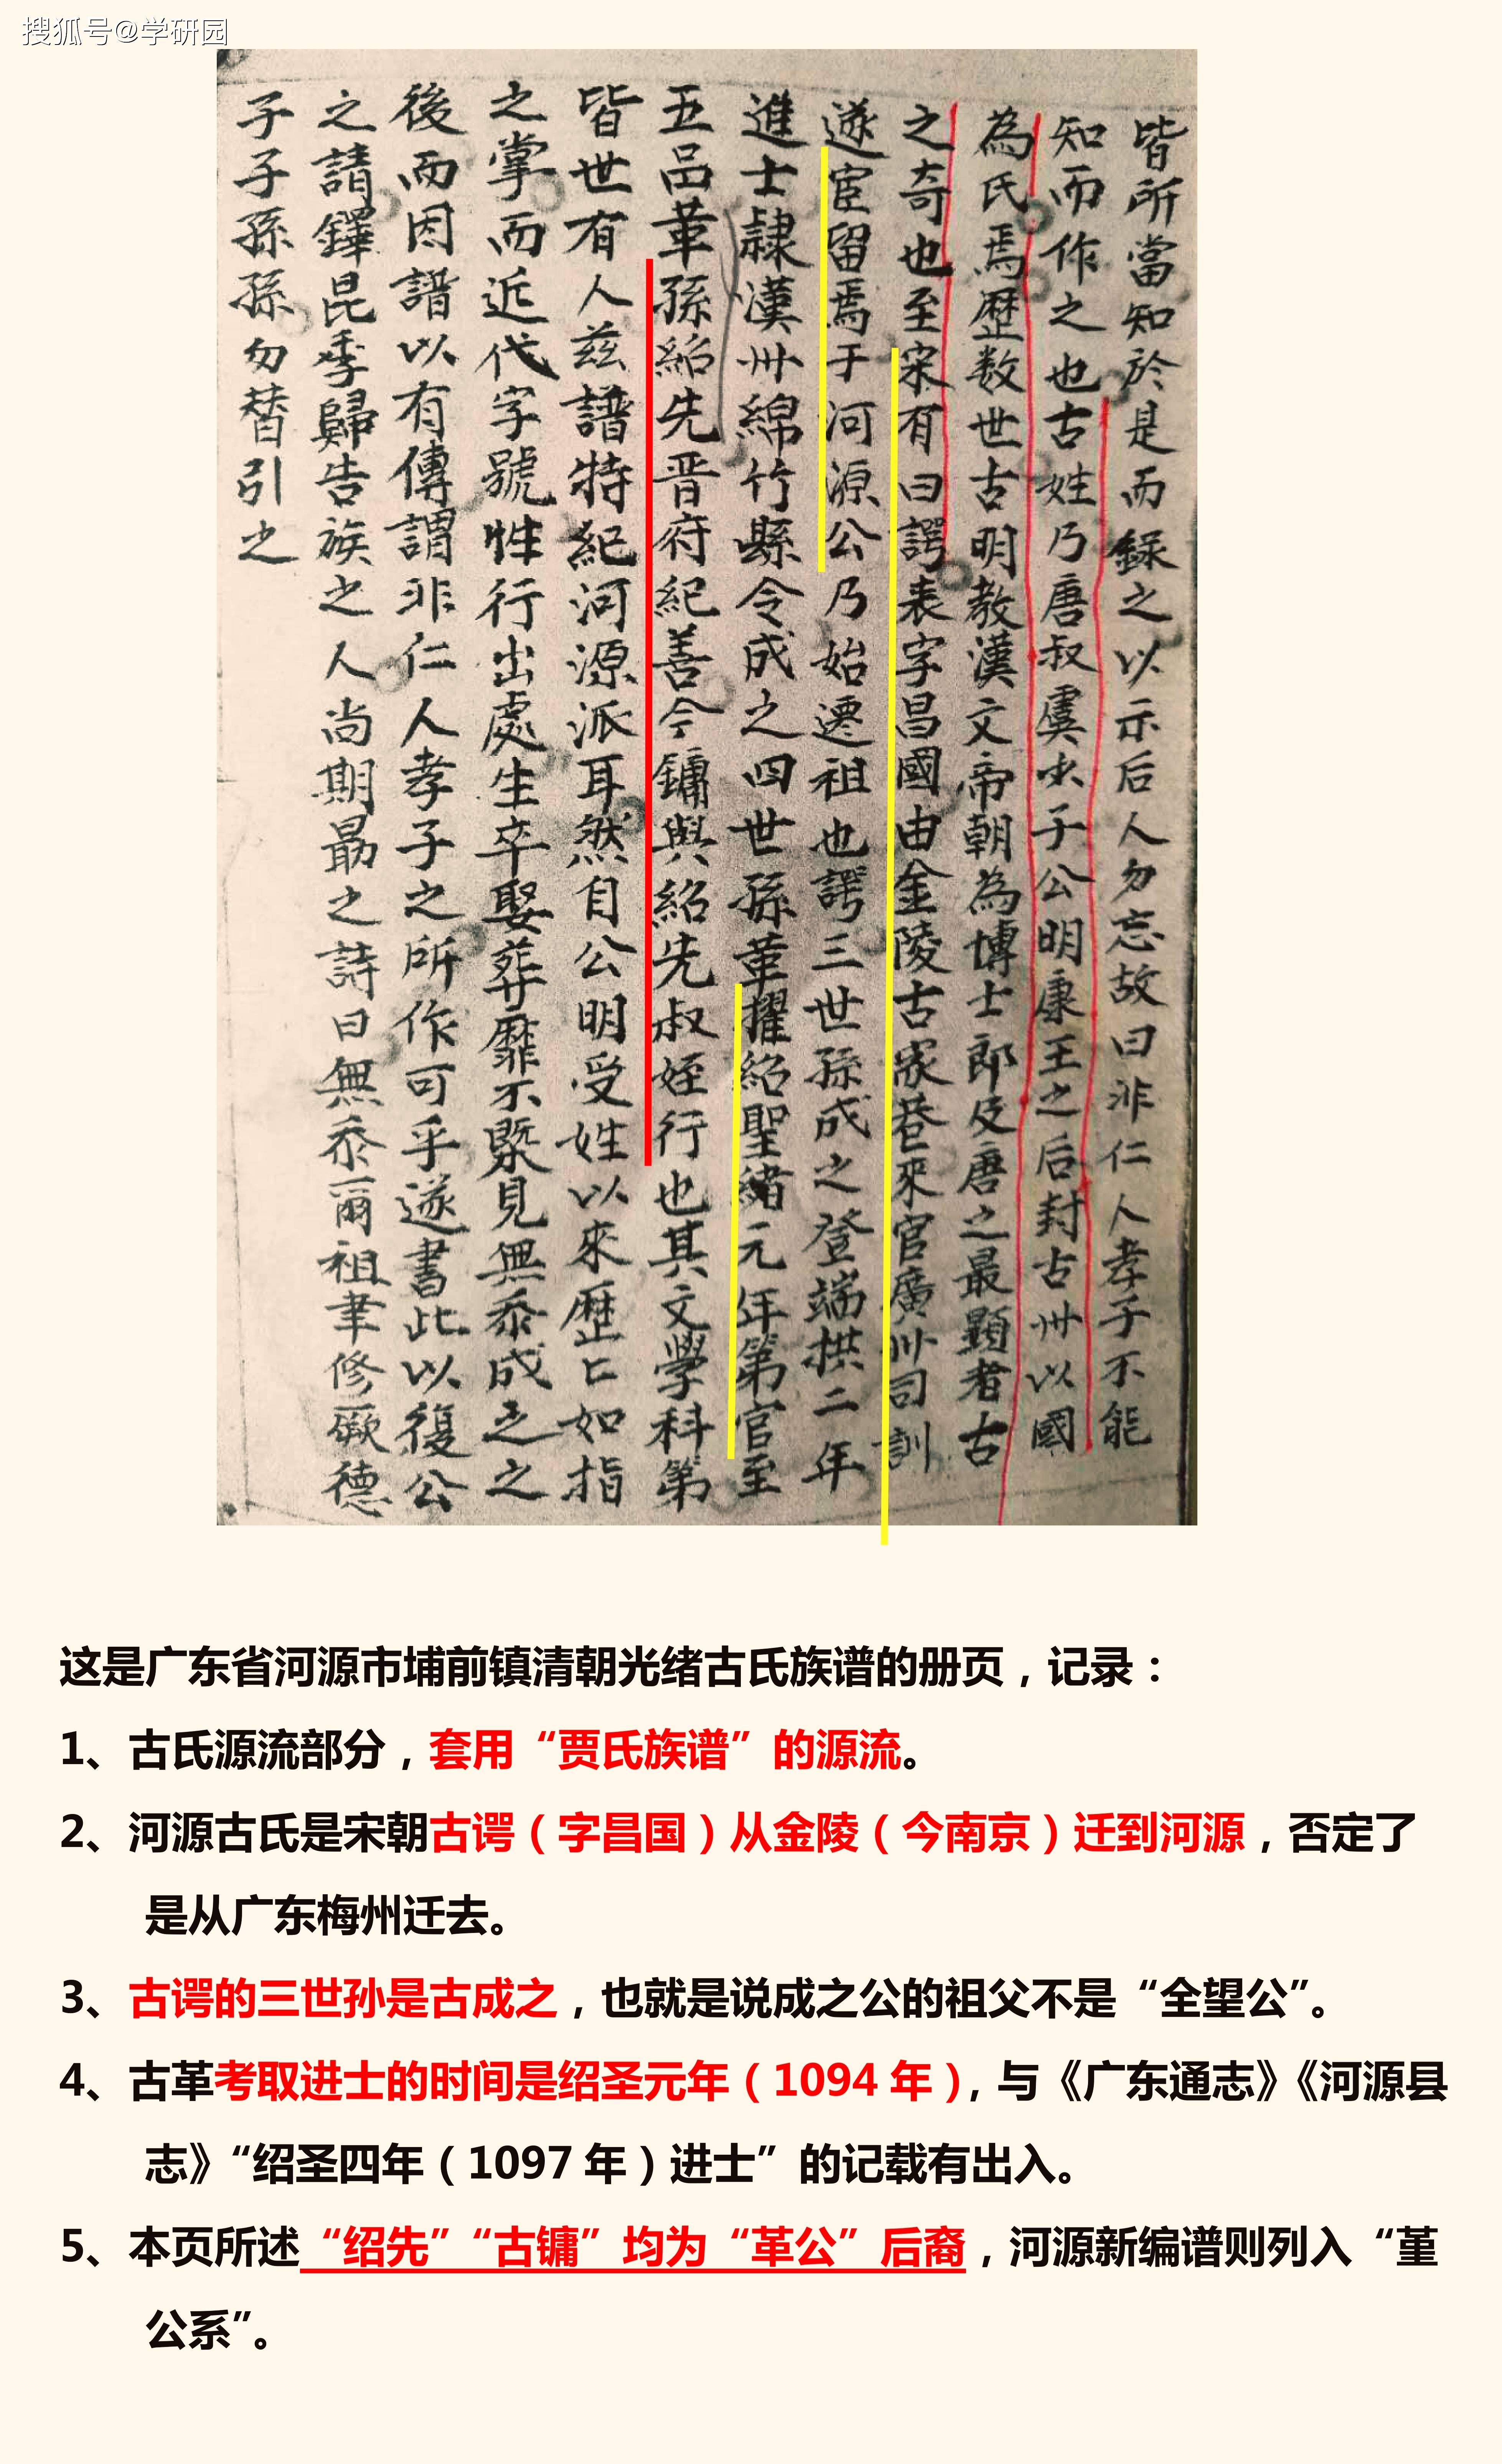 搜狐号@学研园
皆所當知於是而録之以示后人勿忘故曰非仁人孝子不能
知而作之也古姓乃唐叔虞少子公明康王之后封古州以國
為氏焉歷数世古明教漢文帝朝為博士郎及唐之最顕者古
之奇也至宋有曰諤表字昌國由金陵古家巷來官廣州司訓
遂宦留焉于河源公乃始遷祖也諤三世孫成之登端拱二年
進士隷漢州綿竹縣令成之四世孫革擢紹聖緒元年第官至
五品革孫紹先晋府紀善今鏞與紹先叔姪行也其文學科第
皆世有人兹譜特紀河源派耳然自公明受姓以來歷匕如指
之掌而近代字號性行出處生卒娶葬靡不槩見無忝成之之
後而因譜以有傳謂非仁人孝子之所作可乎遂書此以復公
之請鐸昆季歸告族之人尚期勗之詩曰無忝爾祖聿修厥德
子子孫孫勿替引之
这是广东省河源市埔前镇清朝光绪古氏族谱的册页，记录：
1、古氏源流部分，套用“贾氏族谱”的源流。
2、河源古氏是宋朝古谔（字昌国）从金陵（今南京）迁到河源，否定了
是从广东梅州迁去。
3、古谔的三世孙是古成之，也就是说成之公的祖父不是“全望公”。
4、古革考取进士的时间是绍圣元年（1094 年），与《广东通志》《河源县
志》“绍圣四年（1097 年）进士”的记载有出入。
5、本页所述“绍先”“古镛”均为“革公”后裔，河源新编谱则列入“堇
公系”。